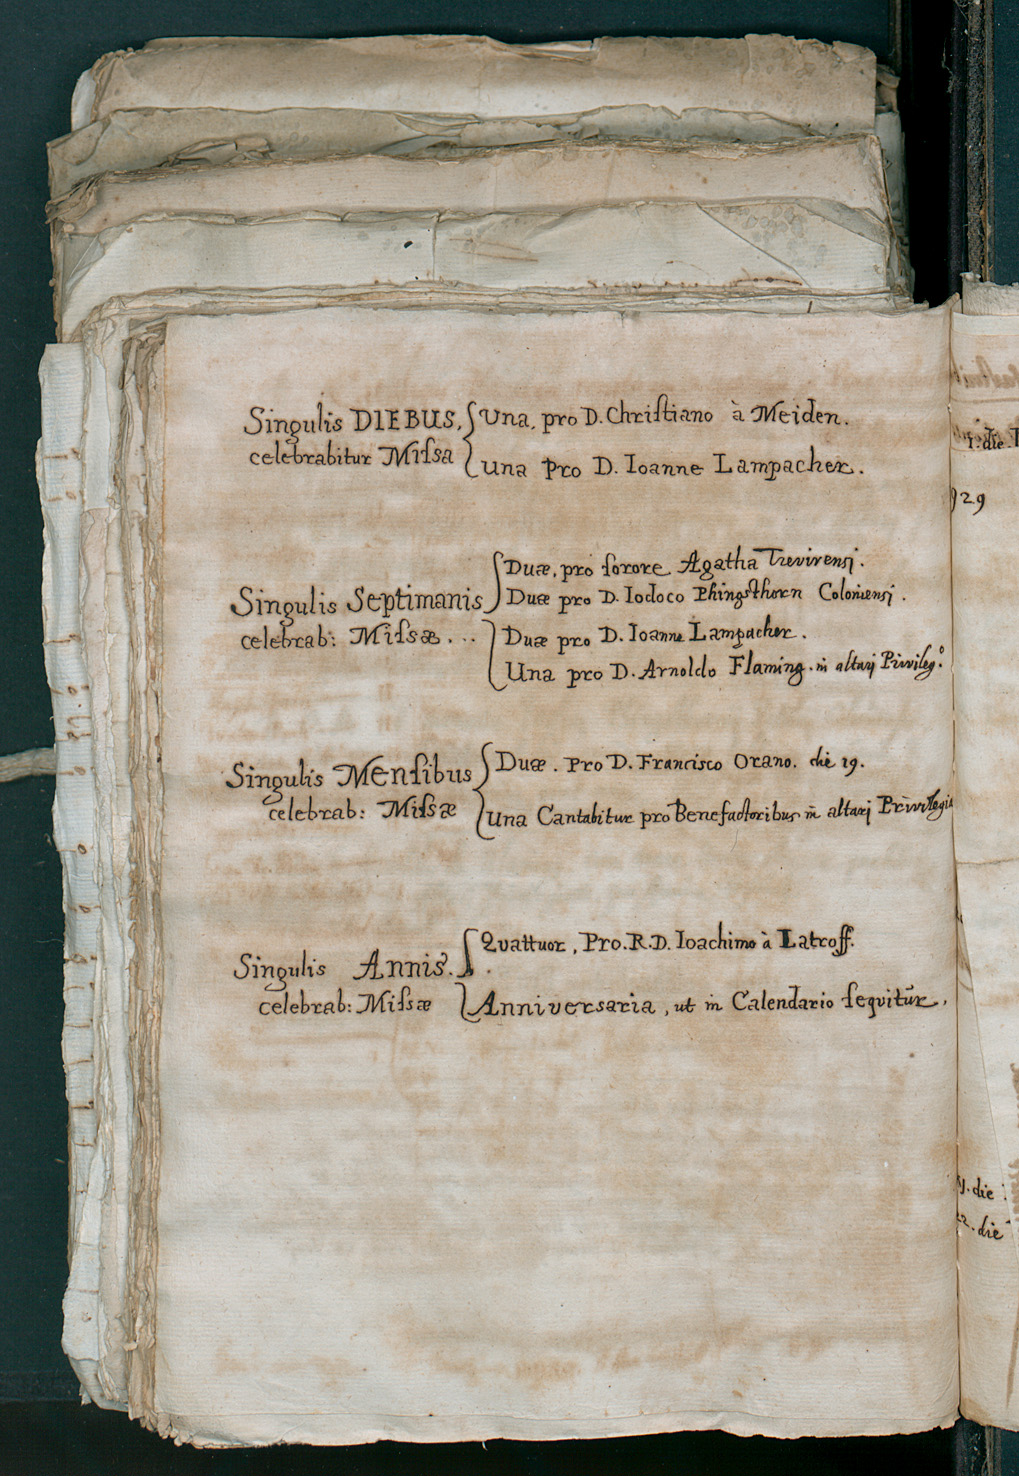 Singulis DIEBUS, Una, pro D. Christiano à Meiden.
celebrabitur Missa Una pro D. Ioanne Lampacher.
Duæ, pro sorore Agatha Trevirensi.
Singulis Septimanis Duæ pro D. Iodoco Phingsthorn Coloniensi.
celebrab: Missæ... Duæ pro D. Ioanne Lampacher.
Una pro D. Arnoldo Flaming. in altarj Privileg:º
Singulis Mensibus Duæ. Pro D. Francisco Orano. die 19.
celebrab: Missæ Una Cantabitur pro Benefactoribus in altarj
Singulis Annis. Quattuor, Pro. R. D. Ioachimo à Latroff.
celebrab: Missæ Anniversaria, ut in Calendario sequitur,
1. die
29
1. die
22. die